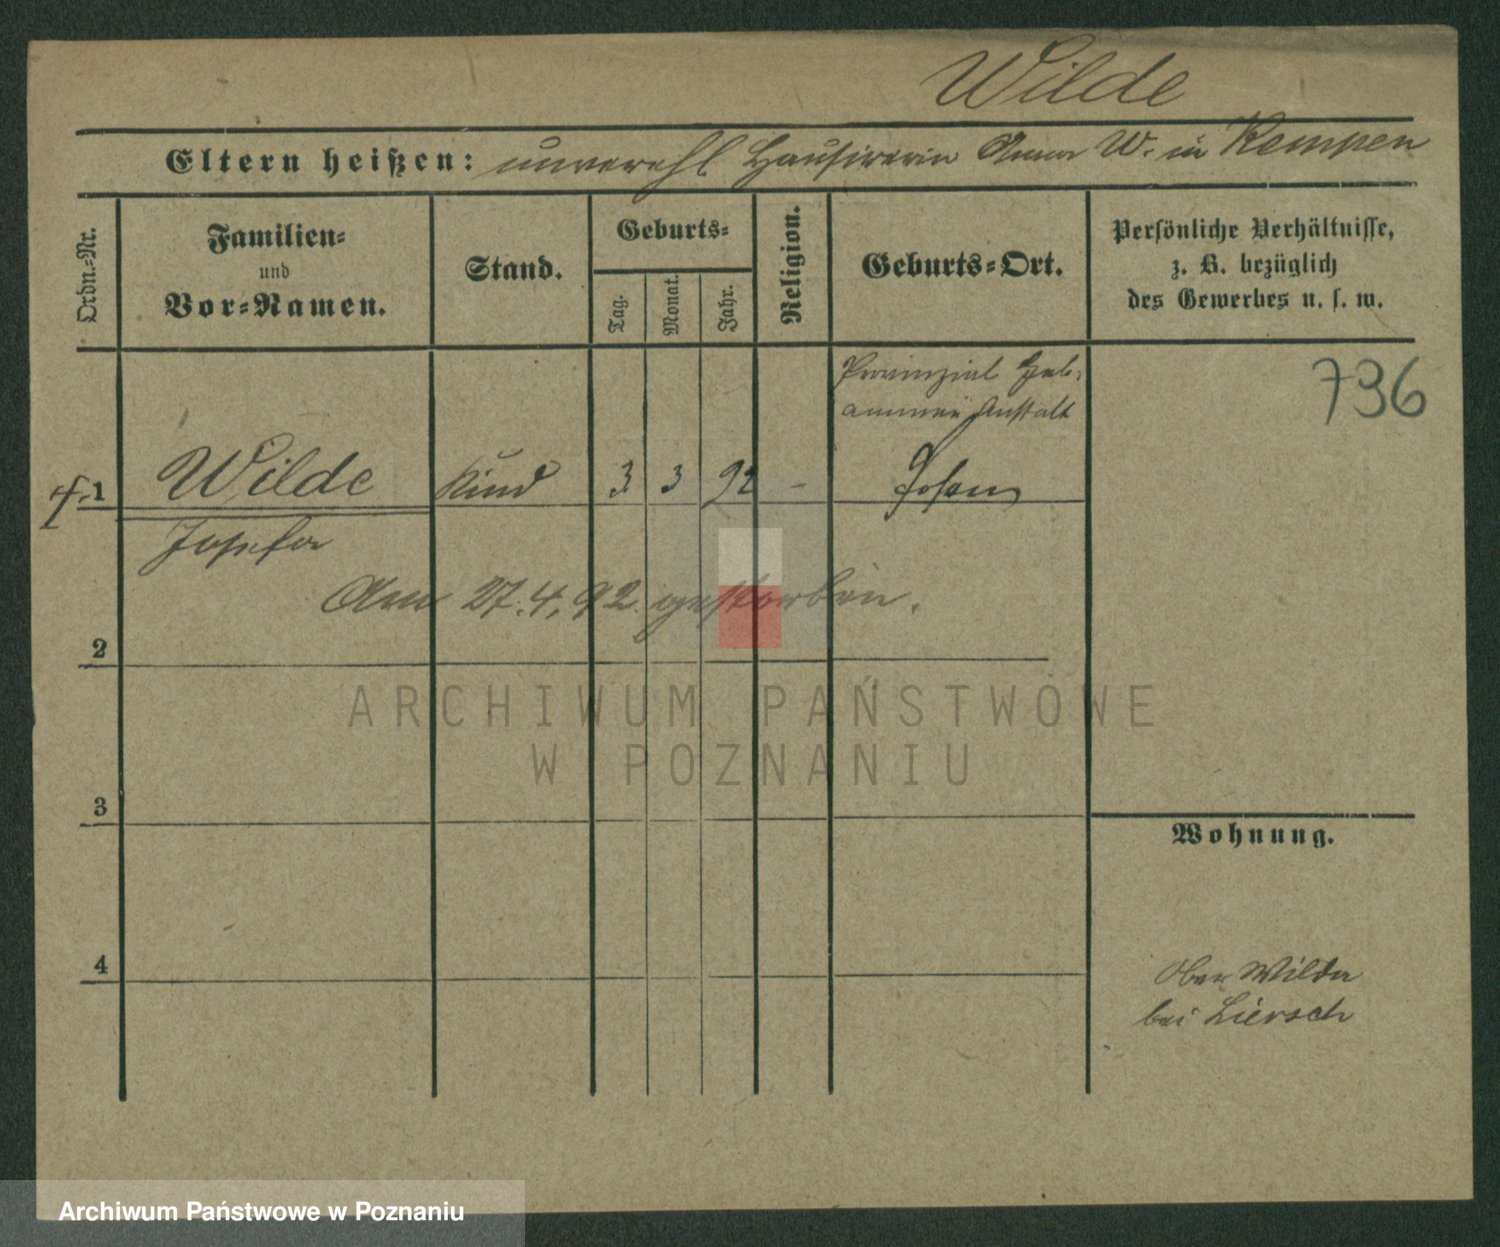 Wilde
Eltern heißen: unverehl Hausirerin Anna W. in Kempen
Ordn.-Nr.
Familien-
und
Vor-Namen.
Stand.
Geburts-
Tag.
Monat.
Jahr.
Religion.
Geburts-Ort.
Persönliche Verhältnisse,
z. B. bezüglich
des Gewerbes u. s. w.
736
Provinzial Heb-
ammen Anstalt
1 Wilde Kind 3 3 92 - Posen
Josefa
Am 27.4.92 gestorben.
2
ARCHIWUM PAŃSTWOWE
W POZNANIU
3
Wohnung.
4
Ober Wilda
bei Liersch
Archiwum Państwowe w Poznaniu